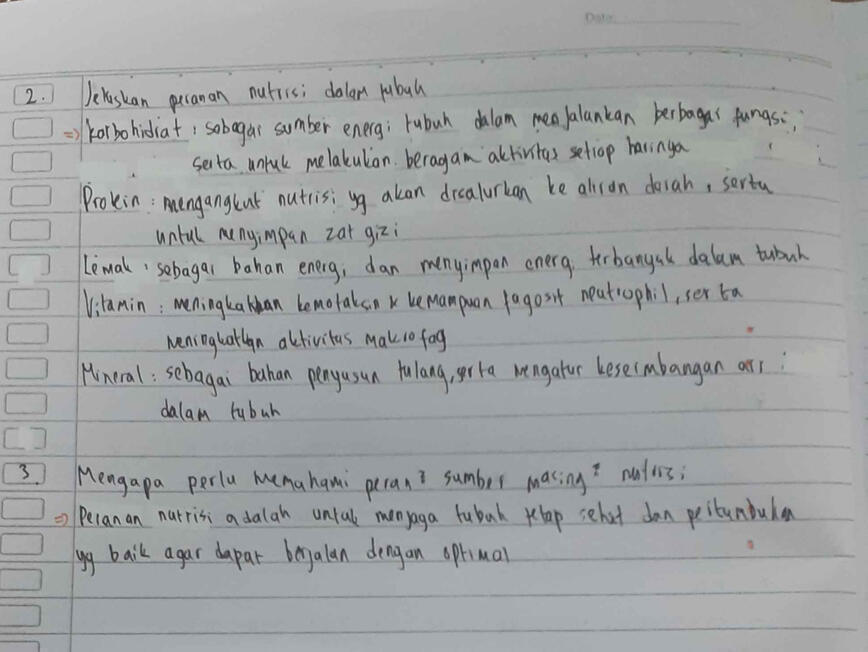 Date
2. Jelaskan peranan nutrisi dalam tubuh
=> Karbohidrat : sebagai sumber energi tubuh dalam menjalankan berbagai fungsi,
serta untuk melakukan beragam aktivitas setiap harinya
Protein : mengangkut nutrisi yg akan disalurkan ke aliran darah, serta
untuk menyimpan zat gizi
Lemak : sebagai bahan energi dan menyimpan energi terbanyak dalam tubuh
Vitamin : meningkatkan kemotaksin & kemampuan fagosit neutrophil, serta
meningkatkan aktivitas makrofag
Mineral : sebagai bahan penyusun tulang, serta mengatur keseimbangan air
dalam tubuh
3. Mengapa perlu memahami peran² sumber masing² nutrisi
=> Peranan nutrisi adalah untuk menjaga tubuh tetap sehat dan pertumbuhan
yg baik agar dapat berjalan dengan optimal